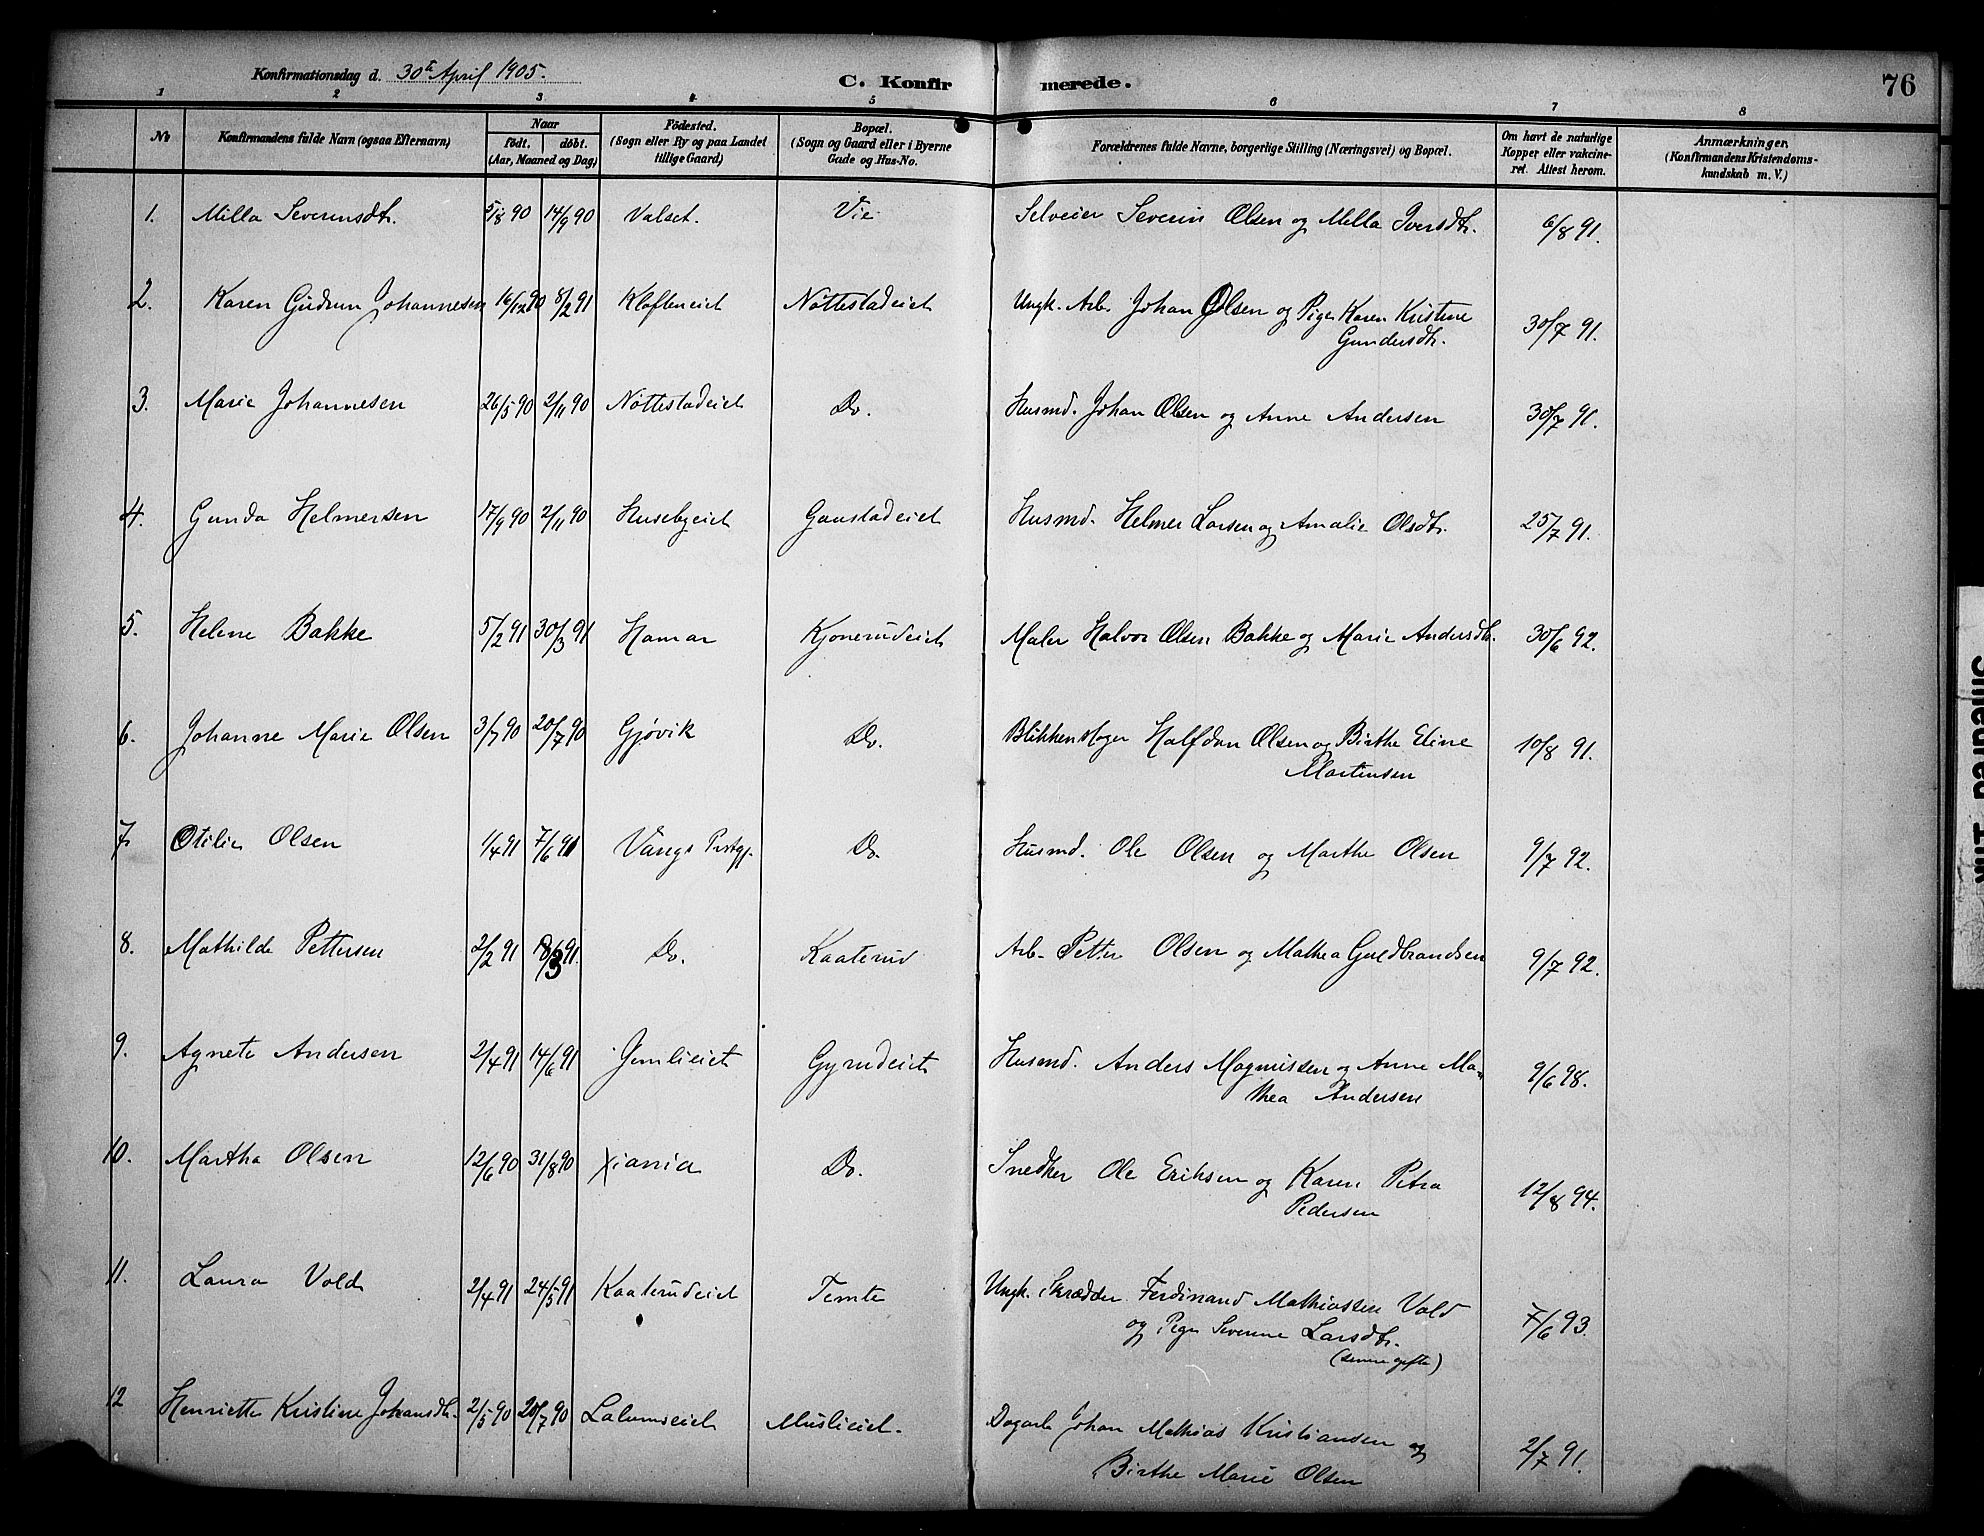 Konfirmationsdag d. 30te April 1905.
C. Konfirmerede.
76
1 2 3 4 5 6 7 8
No
Konfirmandens fulde Navn (ogsaa Efternavn)
Naar
født. døbt.
(Aar, Maaned og Dag)
Fødested.
(Sogn eller By og paa Landet
tillige Gaard)
Bopæl.
(Sogn og Gaard eller i Byerne
Gade og Hus-No.
Forældrenes fulde Navne, borgerlige Stilling (Næringsvei) og Bopæl.
Om havt de naturlige
Kopper eller vakcine-
ret. Attest herom.
Anmærkninger.
(Konfirmandens Kristendoms-
kundskab m. V.)
1. Milla Severinsdtr. 5/8 90 14/9 90 Valset. Vie Selveier Severin Olsen og Milla Iversdtr. 6/8 91.
2. Karen Gudrun Johannesen 16/12 90 8/2 91 Kløfteneiet Nøttestadeiet Ungk. Arb. Johan Olsen og Pige Karen Kristine 30/7 91.
Gundersdtr.
3. Marie Johannesen 26/5 90 2/11 90 Nøttestadeiet Do. Husmd. Johan Olsen og Anne Andersen 30/7 91.
4. Gunda Helmersen 17/9 90 2/11 90 Husebyeiet Gaustadeiet Husmd. Helmer Larsen og Amalie Olsdtr. 25/7 91.
5. Helene Bakke 5/2 91 30/3 91 Hamar Kjonerudeiet Maler Halvor Olsen Bakke og Marie Andersdtr. 30/6 92.
6. Johanne Marie Olsen 3/7 90 20/7 90 Gjøvik Do. Blikkenslager Halfdan Olsen og Birthe Eline 10/8 91.
Martinsen
7. Otilie Olsen 1/4 91 7/6 91 Vangs Prstgj. Do. Husmd. Ole Olsen og Marthe Olsen 9/7 92.
8. Mathilde Pettersen 2/2 91 /3 91. Do. Kaaterud Arb. Petter Olsen og Mathea Guldbrandsen 9/7 92.
9. Agnete Andersen 2/4 91 14/6 91 Jemlieiet Gyrudeiet Husmd. Anders Magnussen og Anne Ma- 9/6 98.
thea Andersen
10. Martha Olsen 12/6 90 31/8 90 Xiania Do. Snedker Ole Eriksen og Karen Petra 12/8 94.
Pedersen
11. Laura Vold 2/4 91 24/5 91 Kaaterudeiet Temte Ungk. Skrædder Ferdinand Mathiassen Vold 7/6 93.
og Pige Severine Larsdtr.
(senere gifte)
12 Henriette Kristine Johansdtr. 2/5 90 20/7 90 Lalumseiet Muslieiet. Dagarb. Johan Mathias Kristiansen og 2/7 91.
Birthe Marie Olsen